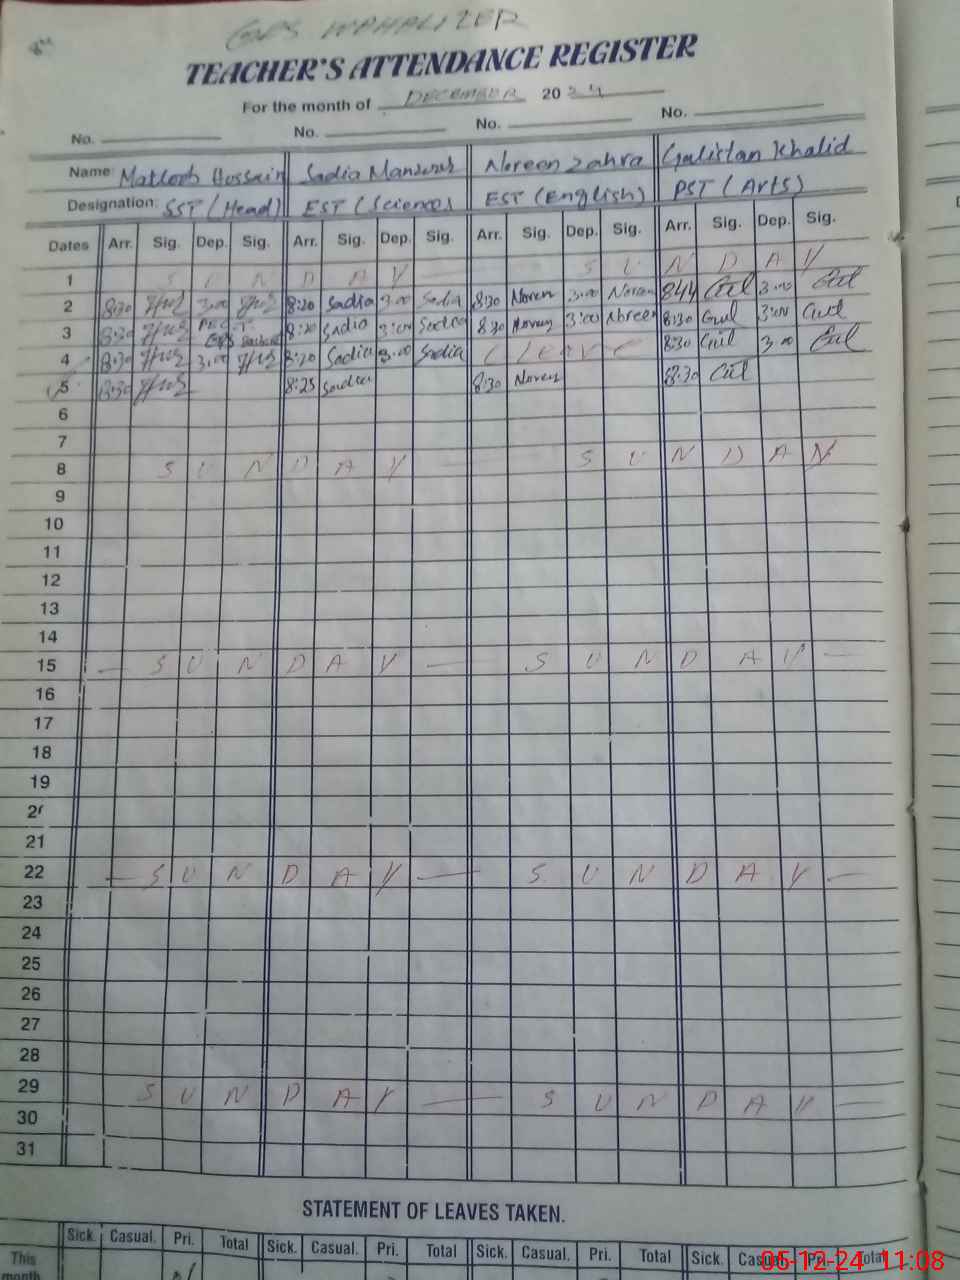 GPS
TEACHER'S ATTENDANCE REGISTER
For the month of DECEMBER 2024
No. No. No. No.
Name Matloob Hussain Sadia Manzoor Noreen Zahra Gulistan Khalid
Designation: SST (Head) EST (Sciences EST (English) PST (Arts)
Dates Arr. Sig. Dep. Sig. Arr. Sig. Dep. Sig. Arr. Sig. Dep. Sig. Arr. Sig. Dep. Sig.
1 S U N D A Y S U N D A Y
2 8:30 3:00 8:20 Sadia 3:00 Sadia 8:30 Noren 3:00 Noren 844 Gul 3:00 Gul
3 8:30 8:20 Sadia 3:00 Sadia 8:30 Noren 3:00 Noreen 8:30 Gul 3:00 Gul
4 8:30 3:00 8:20 Sadia 3:00 Sadia C Leave 8:30 Gul 3:00 Gul
5 8:30 8:25 Sadia 8:30 Noren 8:30 Gul
6
7
8 S U N D A Y S U N D A N
9
10
11
12
13
14
15 — S U N D A Y — S U N D A Y —
16
17
18
19
20
21
22 — S U N D A Y — S U N D A Y —
23
24
25
26
27
28
29 S U N D A Y — S U N D A Y —
30
31
STATEMENT OF LEAVES TAKEN.
Sick. Casual. Pri. Total Sick. Casual. Pri. Total Sick. Casual. Pri. Total Sick. Casual. Pri. Total
This
month
05-12-24 11:08